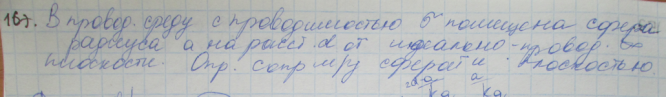 16). В провод. среду с проводимостью σ помещена сфера
радиуса a на расст. d от идеально-провод. ∞
плоскости. Опр. сопр м/у сферой и плоскостью.